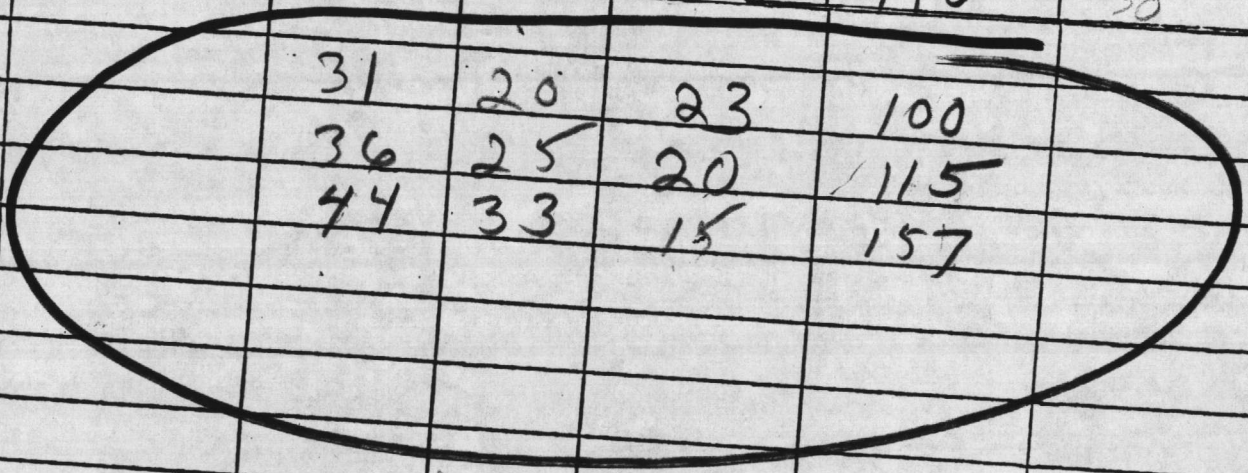 31 20 23 100
36 25 20 115
44 33 15 157